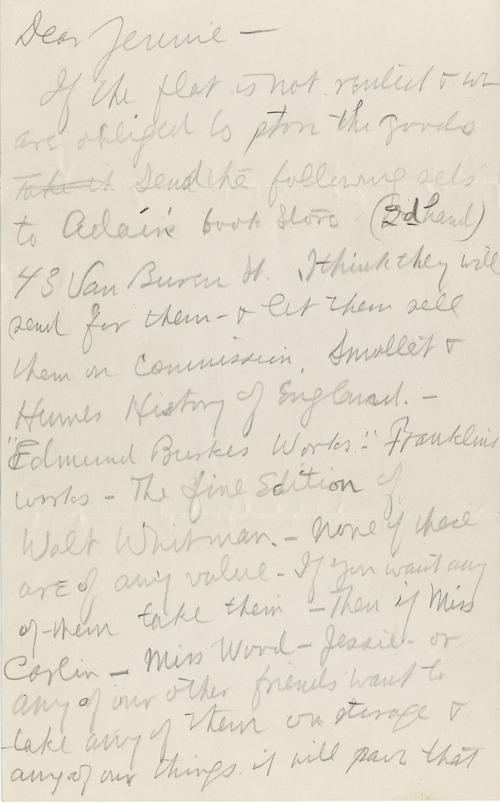 Dear Jennie –
If the flat is not rented & we
are obliged to store the goods
Take th Send the following sets
to Adair's book store (2d hand)
43 Van Buren St. I think they will
send for them – & let them sell
them on commission, Smollet &
Humes History of England. –
"Edmund Burkes Works". Franklins
works – The fine Edition of
Walt Whitman. – None of these
are of any value – If you want any
of them take them – Then if Miss
Carlin – Miss Wood – Jessie – or
any of our other friends want to
take any of them on storage &
any of our things it will save that